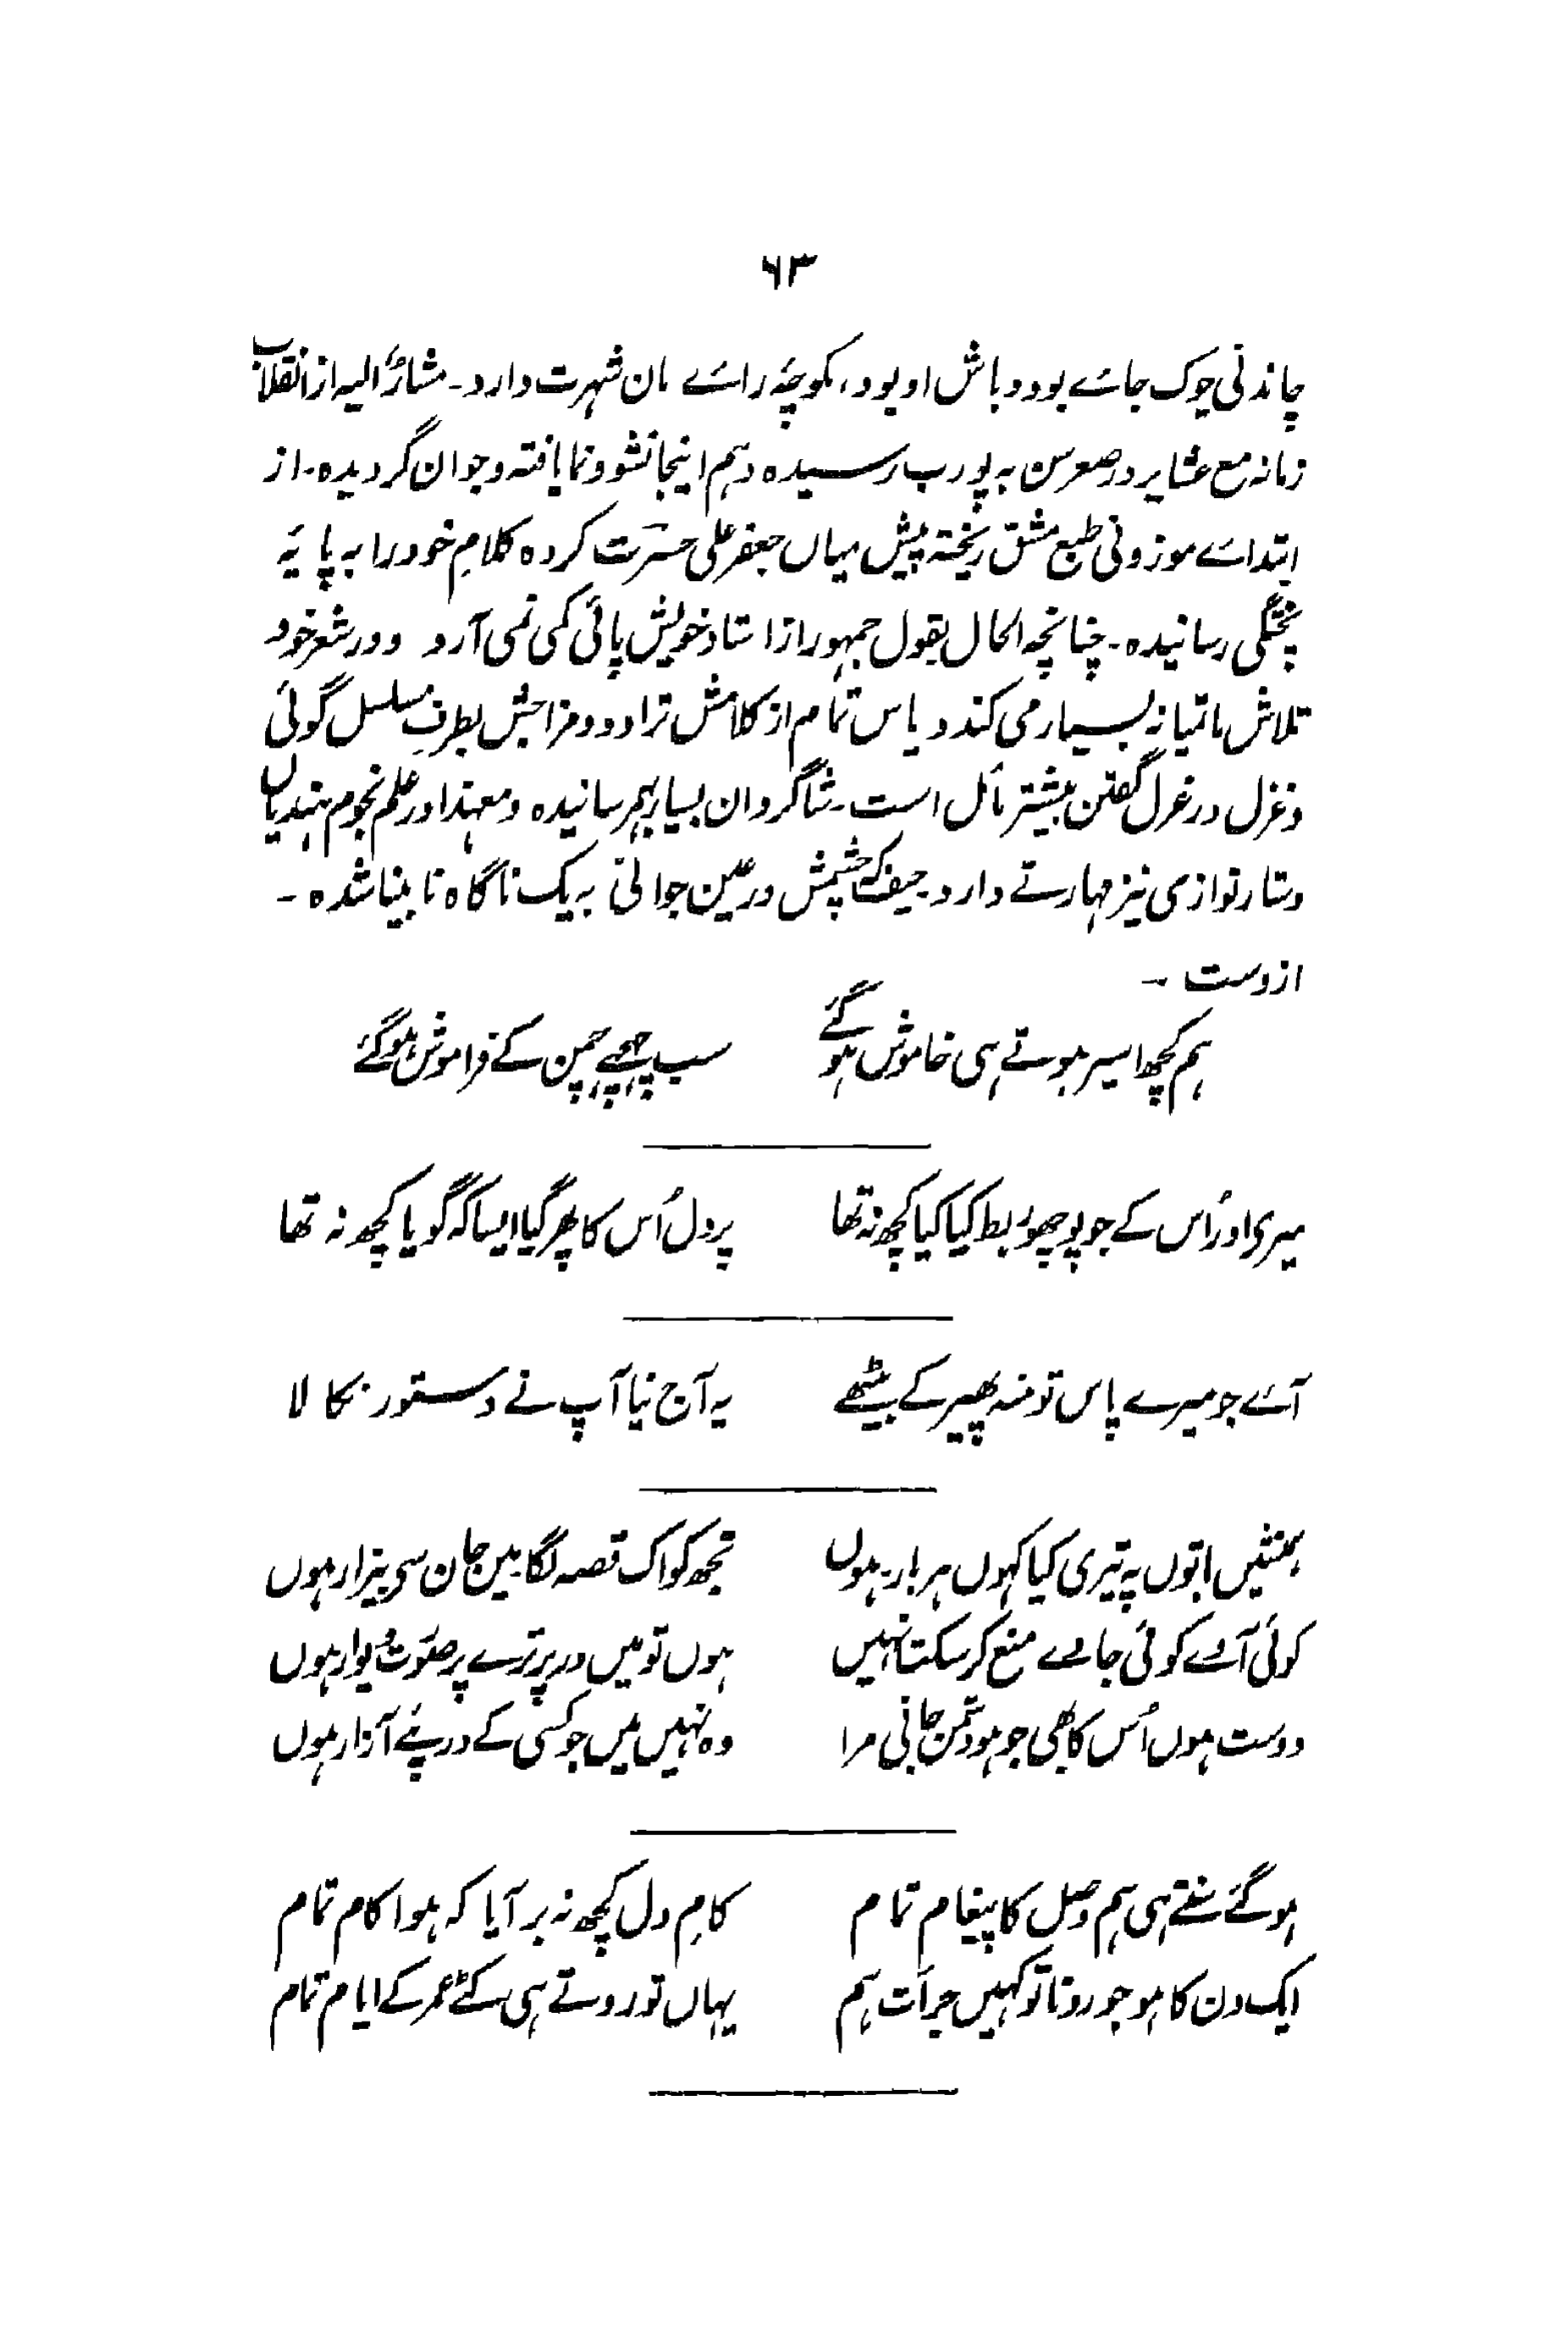 ۶۳
چاندنی چوک جائے بود و باش او بود، کوچۂ رائے مان شہرت دارد۔ مشارٌ الیہ از انقلاب
زمانہ مع عشایر در صغر سن بہ پورب رسیدہ و ہم اینجا نشو و نما یافتہ و جوان گردیدہ۔ از
ابتدائے موزونی طبع مشق ریختہ پیش میاں جعفر علی حسرت کردہ کلامِ خود را بہ پایۂ
پختگی رسانیدہ۔ چنانچہ الحال بقول جمہور از استاد خویش پائی کمی نمی آرد و در شعر خود
تلاش ماتیانہ بسیار می کند و یاس تمام از کلامش تراود و مزاجش بطرفِ مسلسل گوئی
و غزل در غزل گفتن بیشتر مائل است۔ شاگردان بسیار بہم رسانیدہ و معہذا در علم نجوم ہندیاں
و ستار نوازی نیز مہارتے دارد۔ حیف کہ چشمش در عین جوانی بہ یک ناگاہ نابینا شدہ ۔
از وست ۔
ہم کچھ اسیر ہوتے ہی خاموش ہو گئے سب چہچہے چمن کے فراموش ہو گئے
میری اور اُس کے جو پوچھو ربط کیا کیا کچھ نہ تھا پر دل اُس کا پھر گیا ایسا کہ گویا کچھ نہ تھا
آئے جو میرے پاس تو منہ پھیر کے بیٹھے یہ آج نیا آپ نے دستور نکالا
ہمنشیں باتوں پہ تیری کیا کہوں ہر بار ہوں تجھ کو اک قصہ لگا میں جان سی بیزار ہوں
کوئی آئے کوئی جاوے منع کر سکتا نہیں ہوں تو میں در پر ترے پر صورتِ دیوار ہوں
دوست ہوں اُس کا بھی جو ہو دشمن جانی مرا وہ نہیں میں جو کسی کے درپئے آزار ہوں
ہو گئے سنتے ہی ہم وصل کا پیغام تمام کامِ دل کچھ نہ بر آیا کہ ہوا کام تمام
ایک دن کا ہو جو رونا تو کہیں جرأت ہم یہاں تو روتے ہی کٹے عمر کے ایام تمام